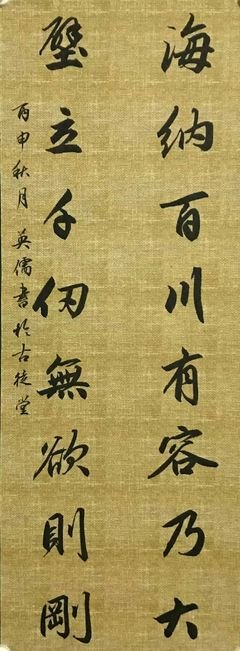 海納百川有容乃大
壁立千仞無欲則剛
丙申秋月 英儒書於古徒堂